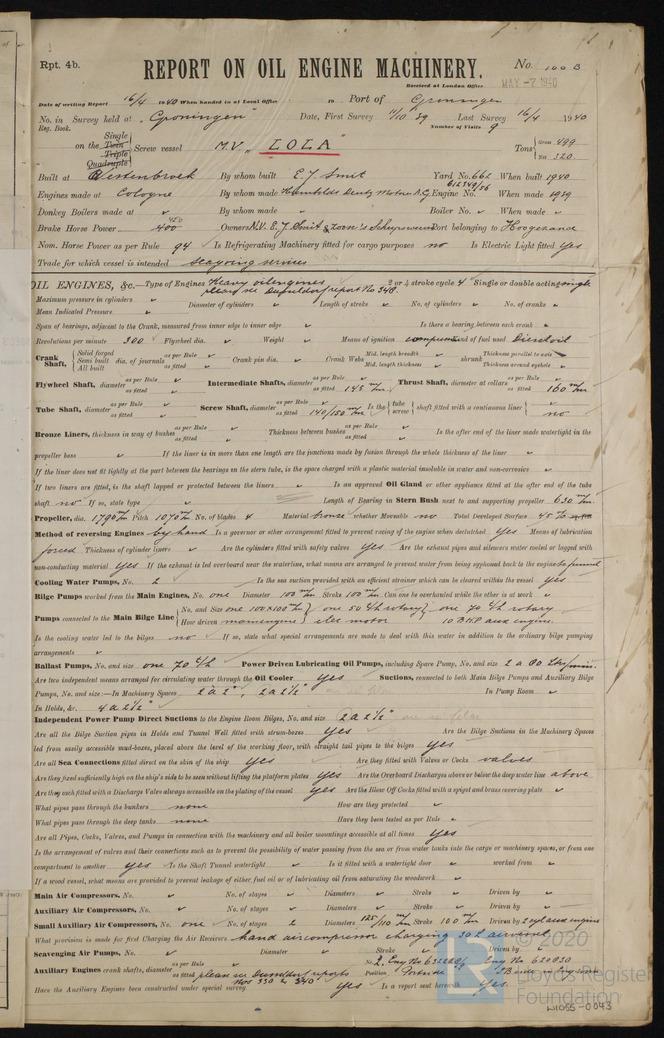 Rpt. 4b.
REPORT ON OIL ENGINE MACHINERY.
No. 1003
Received at London Office
MAY -7 1940
Date of writing Report 16/4 1940 When handed in at Local Office 19 Port of Groningen
No. in Survey held at Groningen Date, First Survey 4/10 39 Last Survey 16/4 1940
Reg. Book. Number of Visits 9
on the Single Twin Triple Quadruple Screw vessel M.V. "LOLA" Tons Gross 499 Net 320
Built at Westerbroek By whom built E.J. Smit Yard No. 662 When built 1940
Engines made at Cologne By whom made Humboldt Deutz Motoren A.G. Engine No. 612349/56 When made 1939
Donkey Boilers made at ✓ By whom made ✓ Boiler No. ✓ When made ✓
Brake Horse Power 400 Owners N.V. E.J. Smit & Zoon's Scheepswerven Port belonging to Hoogezand
Nom. Horse Power as per Rule 94 Is Refrigerating Machinery fitted for cargo purposes no Is Electric Light fitted yes
Trade for which vessel is intended seagoing services
OIL ENGINES, &c.—Type of Engines Heavy oil engines 2 or 4 stroke cycle 4 Single or double acting single
please see Dusseldorf report No 340.
Maximum pressure in cylinders ✓ Diameter of cylinders ✓ Length of stroke ✓ No. of cylinders ✓ No. of cranks ✓
Mean Indicated Pressure ✓
Span of bearings, adjacent to the Crank, measured from inner edge to inner edge ✓ Is there a bearing between each crank ✓
Revolutions per minute 300 Flywheel dia. ✓ Weight ✓ Means of ignition compression Kind of fuel used Diesel oil
Crank Shaft, Solid forged Semi built All built dia. of journals as per Rule as fitted ✓ Crank pin dia. ✓ Crank Webs Mid. length breadth Mid. length thickness ✓ shrunk Thickness parallel to axis Thickness around eyehole ✓
Flywheel Shaft, diameter as per Rule as fitted ✓ Intermediate Shafts, diameter as per Rule as fitted 145 m/m Thrust Shaft, diameter at collars as per Rule as fitted 160 m/m
Tube Shaft, diameter as per Rule as fitted ✓ Screw Shaft, diameter as per Rule as fitted 140/150 m/m Is the tube screw shaft fitted with a continuous liner no
Bronze Liners, thickness in way of bushes as per Rule as fitted ✓ Thickness between bushes as per Rule as fitted ✓ Is the after end of the liner made watertight in the
propeller boss ✓ If the liner is in more than one length are the junctions made by fusion through the whole thickness of the liner ✓
If the liner does not fit tightly at the part between the bearings on the stern tube, is the space charged with a plastic material insoluble in water and non-corrosive ✓
If two liners are fitted, is the shaft lapped or protected between the liners ✓ Is an approved Oil Gland or other appliance fitted at the after end of the tube
shaft no If so, state type ✓ Length of Bearing in Stern Bush next to and supporting propeller 630 m/m
Propeller, dia. 1790 m/m Pitch 1070 m/m No. of blades 4 Material bronze whether Moveable no Total Developed Surface 45 %
Method of reversing Engines by hand Is a governor or other arrangement fitted to prevent racing of the engine when declutched yes Means of lubrication
forced Thickness of cylinder liners ✓ Are the cylinders fitted with safety valves yes Are the exhaust pipes and silencers water cooled or lagged with
non-conducting material yes If the exhaust is led overboard near the waterline, what means are arranged to prevent water from being syphoned back to the engine to funnel
Cooling Water Pumps, No. 2 Is the sea suction provided with an efficient strainer which can be cleared within the vessel yes
Bilge Pumps worked from the Main Engines, No. one Diameter 100 m/m Stroke 100 m/m Can one be overhauled while the other is at work ✓
Pumps connected to the Main Bilge Line No. and Size one 100x100 m/m one 50 t/h rotary one 70 t/h rotary
How driven main engine elec motor 10 BHP aux engine.
Is the cooling water led to the bilges no If so, state what special arrangements are made to deal with this water in addition to the ordinary bilge pumping
arrangements ✓
Ballast Pumps, No. and size one 70 t/h Power Driven Lubricating Oil Pumps, including Spare Pump, No. and size 2 a 80 Ltr/min.
Are two independent means arranged for circulating water through the Oil Cooler yes Suctions, connected to both Main Bilge Pumps and Auxiliary Bilge
Pumps, No. and size:—In Machinery Spaces 2 a 2", 2 a 2½" In Pump Room ✓
In Holds, &c. 4 a 2½"
Independent Power Pump Direct Suctions to the Engine Room Bilges, No. and size 2 a 2½"
Are all the Bilge Suction pipes in Holds and Tunnel Well fitted with strum-boxes yes Are the Bilge Suctions in the Machinery Spaces
led from easily accessible mud-boxes, placed above the level of the working floor, with straight tail pipes to the bilges yes
Are all Sea Connections fitted direct on the skin of the ship yes Are they fitted with Valves or Cocks valves
Are they fixed sufficiently high on the ship's side to be seen without lifting the platform plates yes Are the Overboard Discharges above or below the deep water line above
Are they each fitted with a Discharge Valve always accessible on the plating of the vessel yes Are the Blow Off Cocks fitted with a spigot and brass covering plate ✓
What pipes pass through the bunkers none How are they protected ✓
What pipes pass through the deep tanks none Have they been tested as per Rule ✓
Are all Pipes, Cocks, Valves, and Pumps in connection with the machinery and all boiler mountings accessible at all times yes
Is the arrangement of valves and their connections such as to prevent the possibility of water passing from the sea or from water tanks into the cargo or machinery spaces, or from one
compartment to another yes Is the Shaft Tunnel watertight ✓ Is it fitted with a watertight door ✓ worked from ✓
If a wood vessel, what means are provided to prevent leakage of either fuel oil or of lubricating oil from saturating the woodwork ✓
Main Air Compressors, No. ✓ No. of stages ✓ Diameters ✓ Stroke ✓ Driven by ✓
Auxiliary Air Compressors, No. ✓ No. of stages ✓ Diameters ✓ Stroke ✓ Driven by ✓
Small Auxiliary Air Compressors, No. one No. of stages 2 Diameters 125/110 m/m Stroke 100 m/m Driven by 2 cyl aux engine
What provision is made for first Charging the Air Receivers hand aircompressor charging 30 L airvessel
Scavenging Air Pumps, No. ✓ Diameter ✓ Stroke ✓ Driven by ✓
Auxiliary Engines crank shafts, diameter as per Rule as fitted please see Dusseldorf reports Nos 330 & 340 No. 2. Eng No 632220/ Eng No 620030
Position Portside
Have the Auxiliary Engines been constructed under special survey yes Is a report sent herewith yes.
© 2020
Lloyd's Register
Foundation
W1055-0043